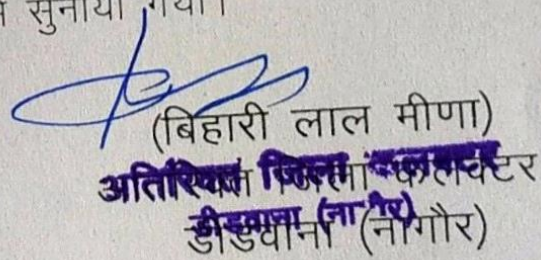 सुनाया गया।
(बिहारी लाल मीणा)
अतिरिक्त जिला कलक्टर
डीडवाना (नागौर)